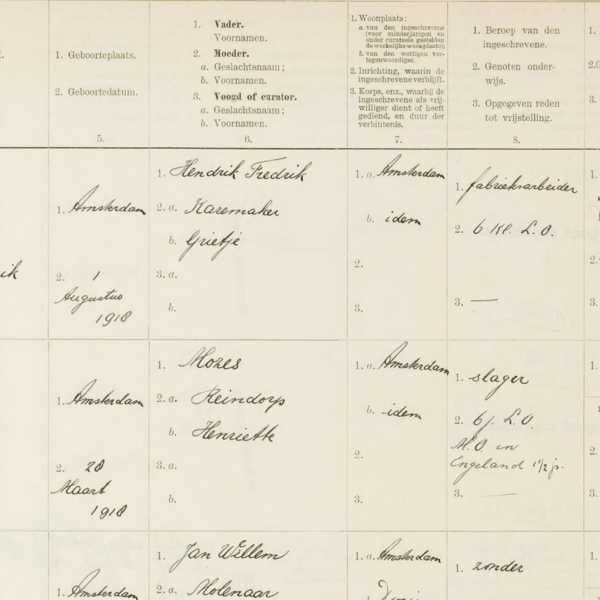 1. Geboorteplaats.
2. Geboortedatum.
5.
1. Vader.
Voornamen.
2. Moeder.
a. Geslachtsnaam;
b. Voornamen.
3. Voogd of curator.
a. Geslachtsnaam;
b. Voornamen.
6.
1. Woonplaats:
a. van den ingeschrevene
(voor minderjarigen en
onder curateele gestelden
de werkelijke woonplaats);
b. van den wettigen ver-
tegenwoordiger.
2. Inrichting, waarin de
ingeschrevene verblijft.
3. Korps, enz., waarbij de
ingeschrevene als vrij-
williger dient of heeft
gediend, en duur der
verbintenis.
7.
1. Beroep van den
ingeschrevene.
2. Genoten onder-
wijs.
3. Opgegeven reden
tot vrijstelling.
8.
1.
2.
3.
ik
1. Amsterdam
2. 1
Augustus
1918
1. Hendrik Fredrik
2. a. Karemaker
b. Grietje
3. a.
b.
1. a. Amsterdam
b. idem
2.
3.
1. fabrieksarbeider
2. 6 Kl. L.O.
3. —
1.
2.
3.
1. Amsterdam
2. 28
Maart
1918
1. Mozes
2. a. Reindorp
b. Henriette
3. a.
b.
1. a. Amsterdam
b. idem
2.
3.
1. slager
2. 6 j. L.O.
M.O. in
Engeland 1 1/2 jr.
3. —
1.
2.
3.
1. Amsterdam
1. Jan Willem
2. a. Molenaar
1. a. Amsterdam
1. zonder
1.